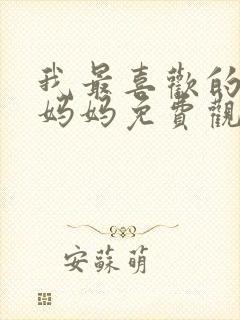 我最喜歡的
妈妈免費觀
安蘇萌